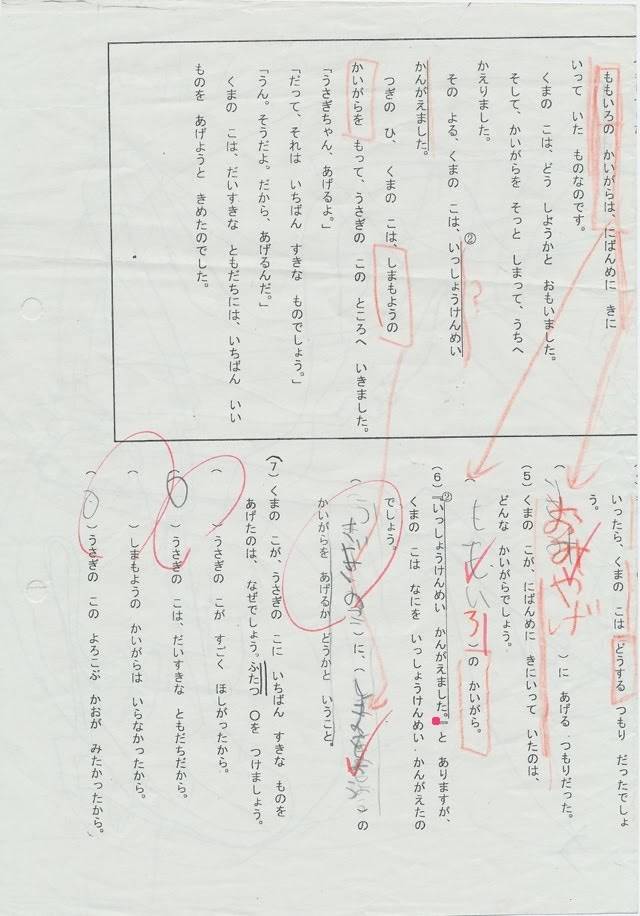 ももいろの かいがらは、にばんめに きに
いって いた ものなのです。
くまの こは、どう しようかと おもいました。
そして、かいがらを そっと しまって、うちへ
かえりました。
その よる、くまの こは、②いっしょうけんめい
かんがえました。
?
つぎの ひ、 くまの こは、しまもようの
かいがらを もって、うさぎの この ところへ いきました。
「うさぎちゃん、あげるよ。」
「だって、それは いちばん すきな ものでしょう。」
「うん。そうだよ。だから、あげるんだ。」
くまの こは、だいすきな ともだちには、いちばん いい
ものを あげようと きめたのでした。
いったら、くまの こは どうする つもり だったでしょ
う。
( )に あげる つもりだった。
(5) くまの こが、にばんめに きにいって いたのは、
どんな かいがらでしょう。
(ももいろ)の かいがら。
(6)『②いっしょうけんめい かんがえました。』と ありますが、
くまの こは なにを いっしょうけんめい かんがえたの
でしょう。
( )に、( )の
かいがらを あげるか どうかと いうこと。
(7) くまの こが、うさぎの こに いちばん すきな ものを
あげたのは、なぜでしょう。ふたつ ○を つけましょう。
( )うさぎの こが すごく ほしがったから。
(○)うさぎの こは、だいすきな ともだちだから。
( )しまもようの かいがらは いらなかったから。
(○)うさぎの この よろこぶ かおが みたかったから。